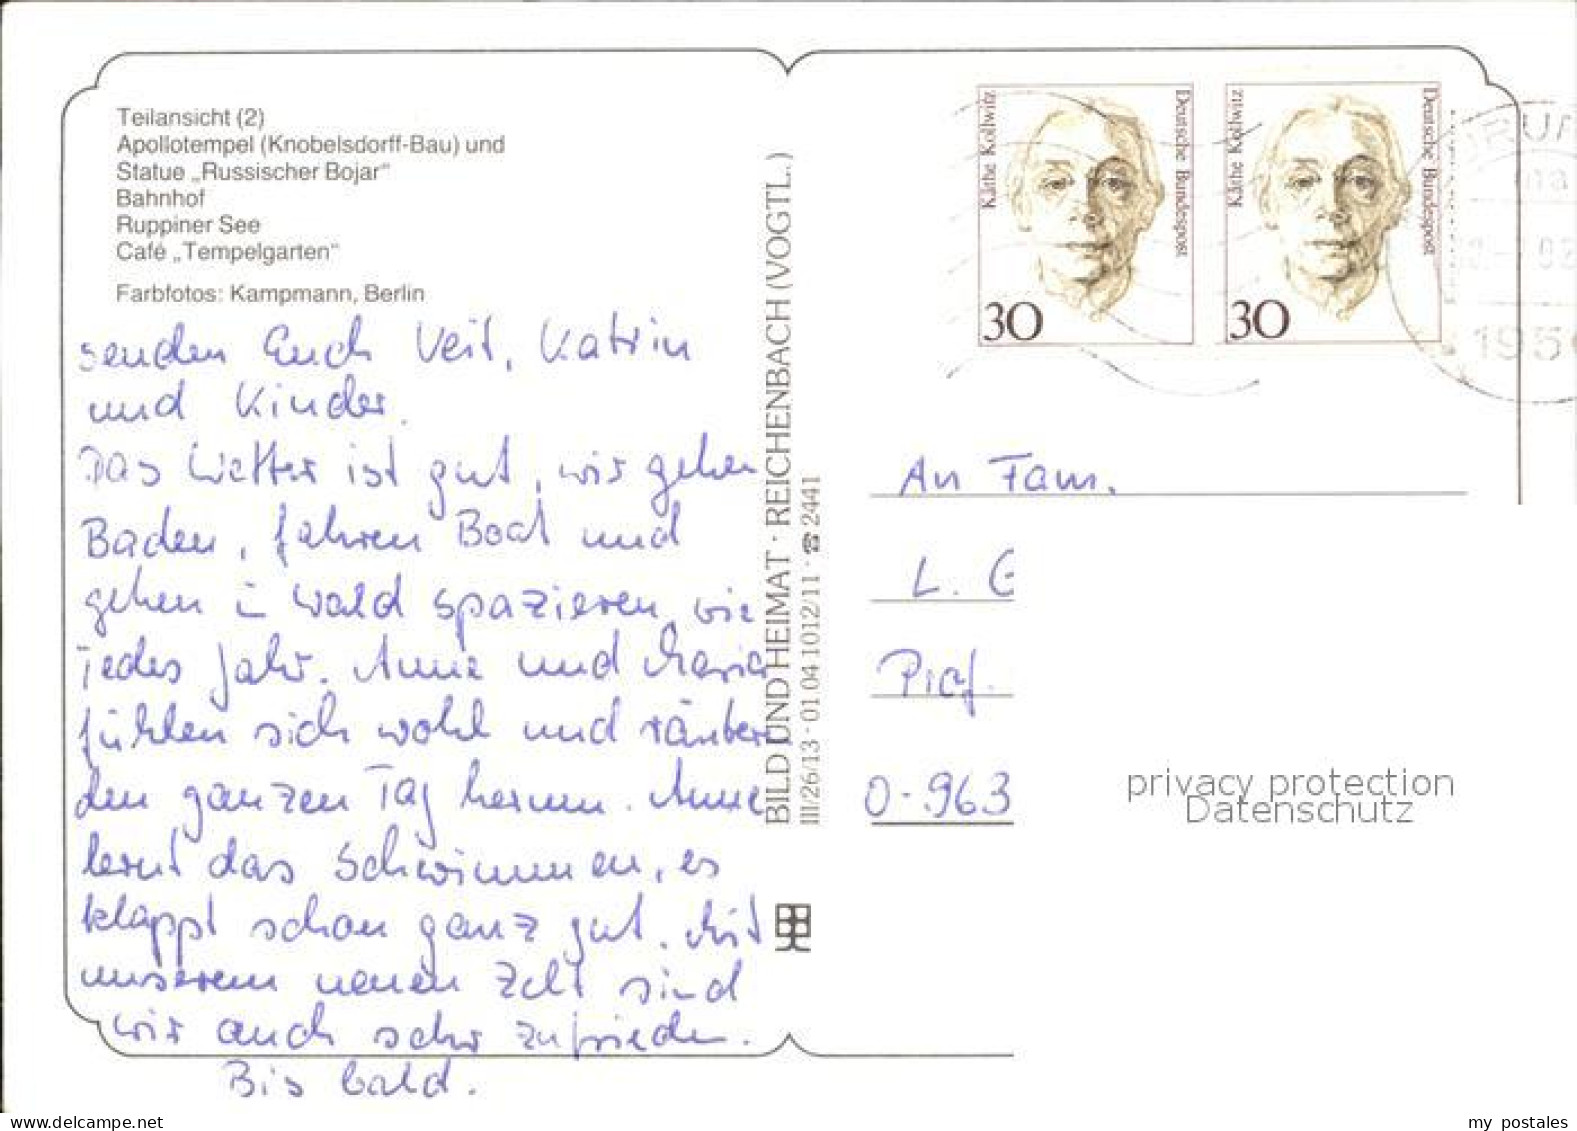 Teilansicht (2)
Apollotempel (Knobelsdorff-Bau) und
Statue „Russischer Bojar“
Bahnhof
Ruppiner See
Café „Tempelgarten“
Farbfotos: Kampmann, Berlin
senden Euch Veit, Katrin
und Kinder.
Das Wetter ist gut, wir gehen
Baden, fahren Boot und
gehen i Wald spazieren wie
jedes Jahr. Anne und Maria
fühlen sich wohl und räubern
den ganzen Tag herum. Anne
lernt das Schwimmen, es
klappt schon ganz gut. Mit
unserem neuen Zelt sind
wir auch sehr zufrieden.
Bis bald.
BILD UND HEIMAT · REICHENBACH (VOGTL.)
III/26/13 · 01 04 10 12/11 · ☎ 2441
Käthe Kollwitz
Deutsche Bundespost
30
Käthe Kollwitz
Deutsche Bundespost
30
195
An Fam.
L. G
O-963
privacy protection
Datenschutz
my postales